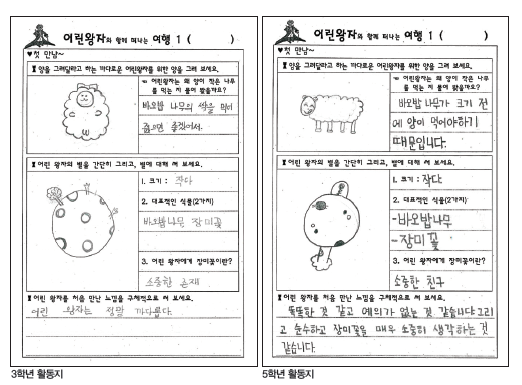 어린왕자와 함께 떠나는 여행 1 (          )
♥첫 만남~
양을 그려달라고 하는 까다로운 어린왕자를 위한 양을 그려 보세요.
어린왕자는 왜 양이 작은 나무
를 먹는 지 물어 봤을까요?
바오밥 나무의 싹을 먹어
줬으면 좋겠어서.
어린 왕자의 별을 간단히 그리고, 별에 대해 써 보세요.
1. 크기 : 작다
2. 대표적인 식물(2가지)
바오밥나무 장미꽃
3. 어린 왕자에게 장미꽃이란?
소중한 존재
어린 왕자를 처음 만난 느낌을 구체적으로 써 보세요.
어린 왕자는 정말 까다롭다.
3학년 활동지
어린왕자와 함께 떠나는 여행 1 (          )
♥첫 만남~
양을 그려달라고 하는 까다로운 어린왕자를 위한 양을 그려 보세요.
어린왕자는 왜 양이 작은 나무
를 먹는 지 물어 봤을까요?
바오밥나무가 크기 전
에 양이 먹어야하기
때문입니다.
어린 왕자의 별을 간단히 그리고, 별에 대해 써 보세요.
1. 크기 : 작다
2. 대표적인 식물(2가지)
-바오밥나무
-장미꽃
3. 어린 왕자에게 장미꽃이란?
소중한 친구
어린 왕자를 처음 만난 느낌을 구체적으로 써 보세요.
똑똑한 것 같고 예의가 없는 것 같습니다 그리
고 순수하고 장미꽃을 매우 소중히 생각하는 것
같습니다.
5학년 활동지